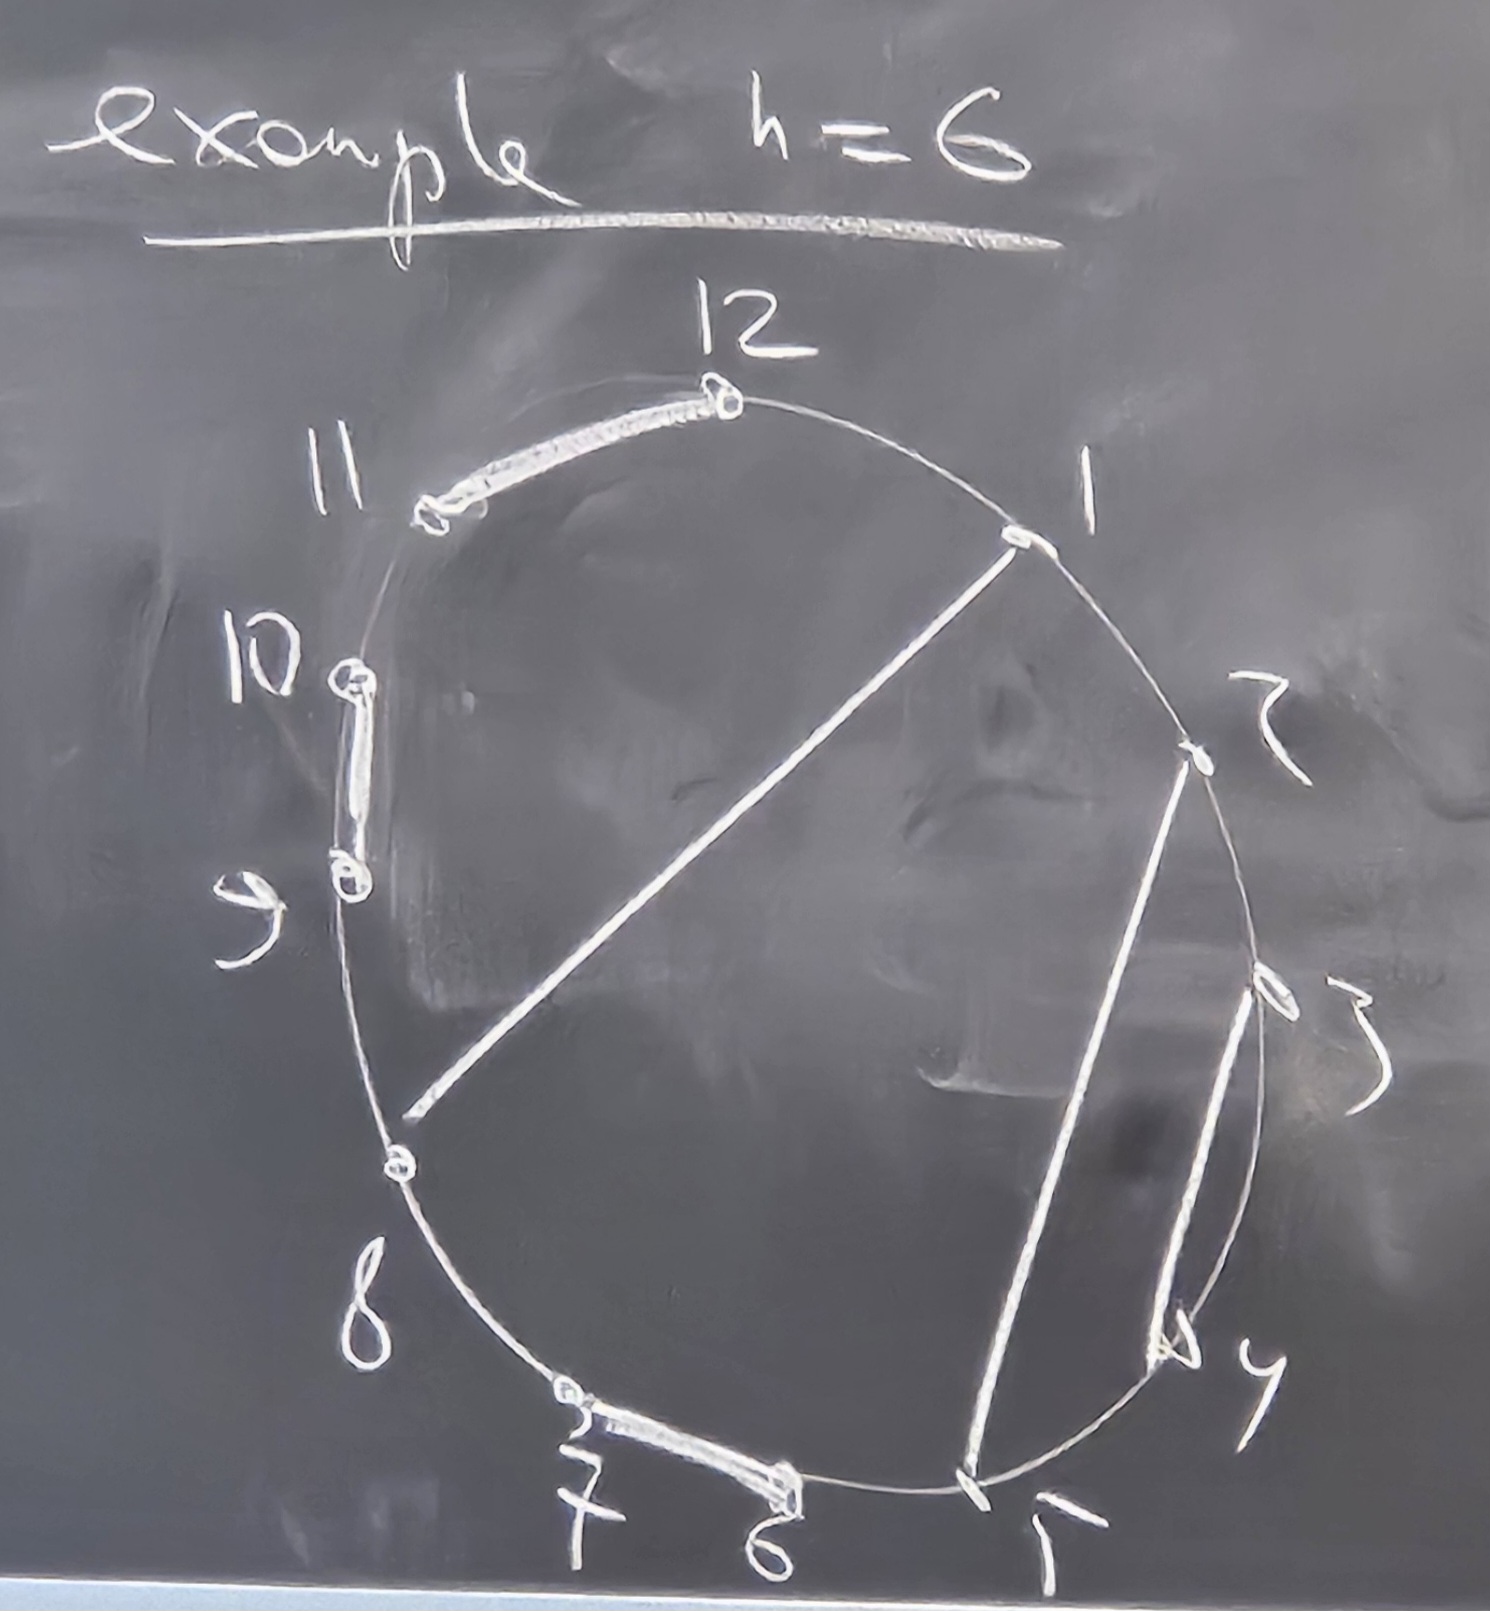 example n=6
12
11
1
10
2
9
3
8
4
7
6
5